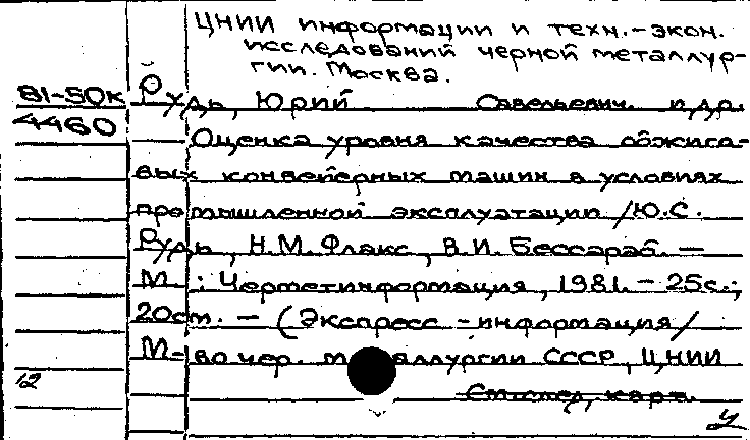 ЦНИИ информации и техн.-экон.
исследований черной металлур-
гии. Москва.
81-50к Рудь, Юрий Савельевич. и др.
4460 Оценка уровня качества обжиго-
вых конвейерных машин в условиях
промышленной эксплуатации /Ю.С.
Рудь, Н.М. Флакс, В.И. Бессараб. —
М.: Черметинформация, 1981. - 25с.;
20см. — (Экспресс-информация/
М-во чер. металлургии СССР, ЦНИИ
12 См. след. карт.